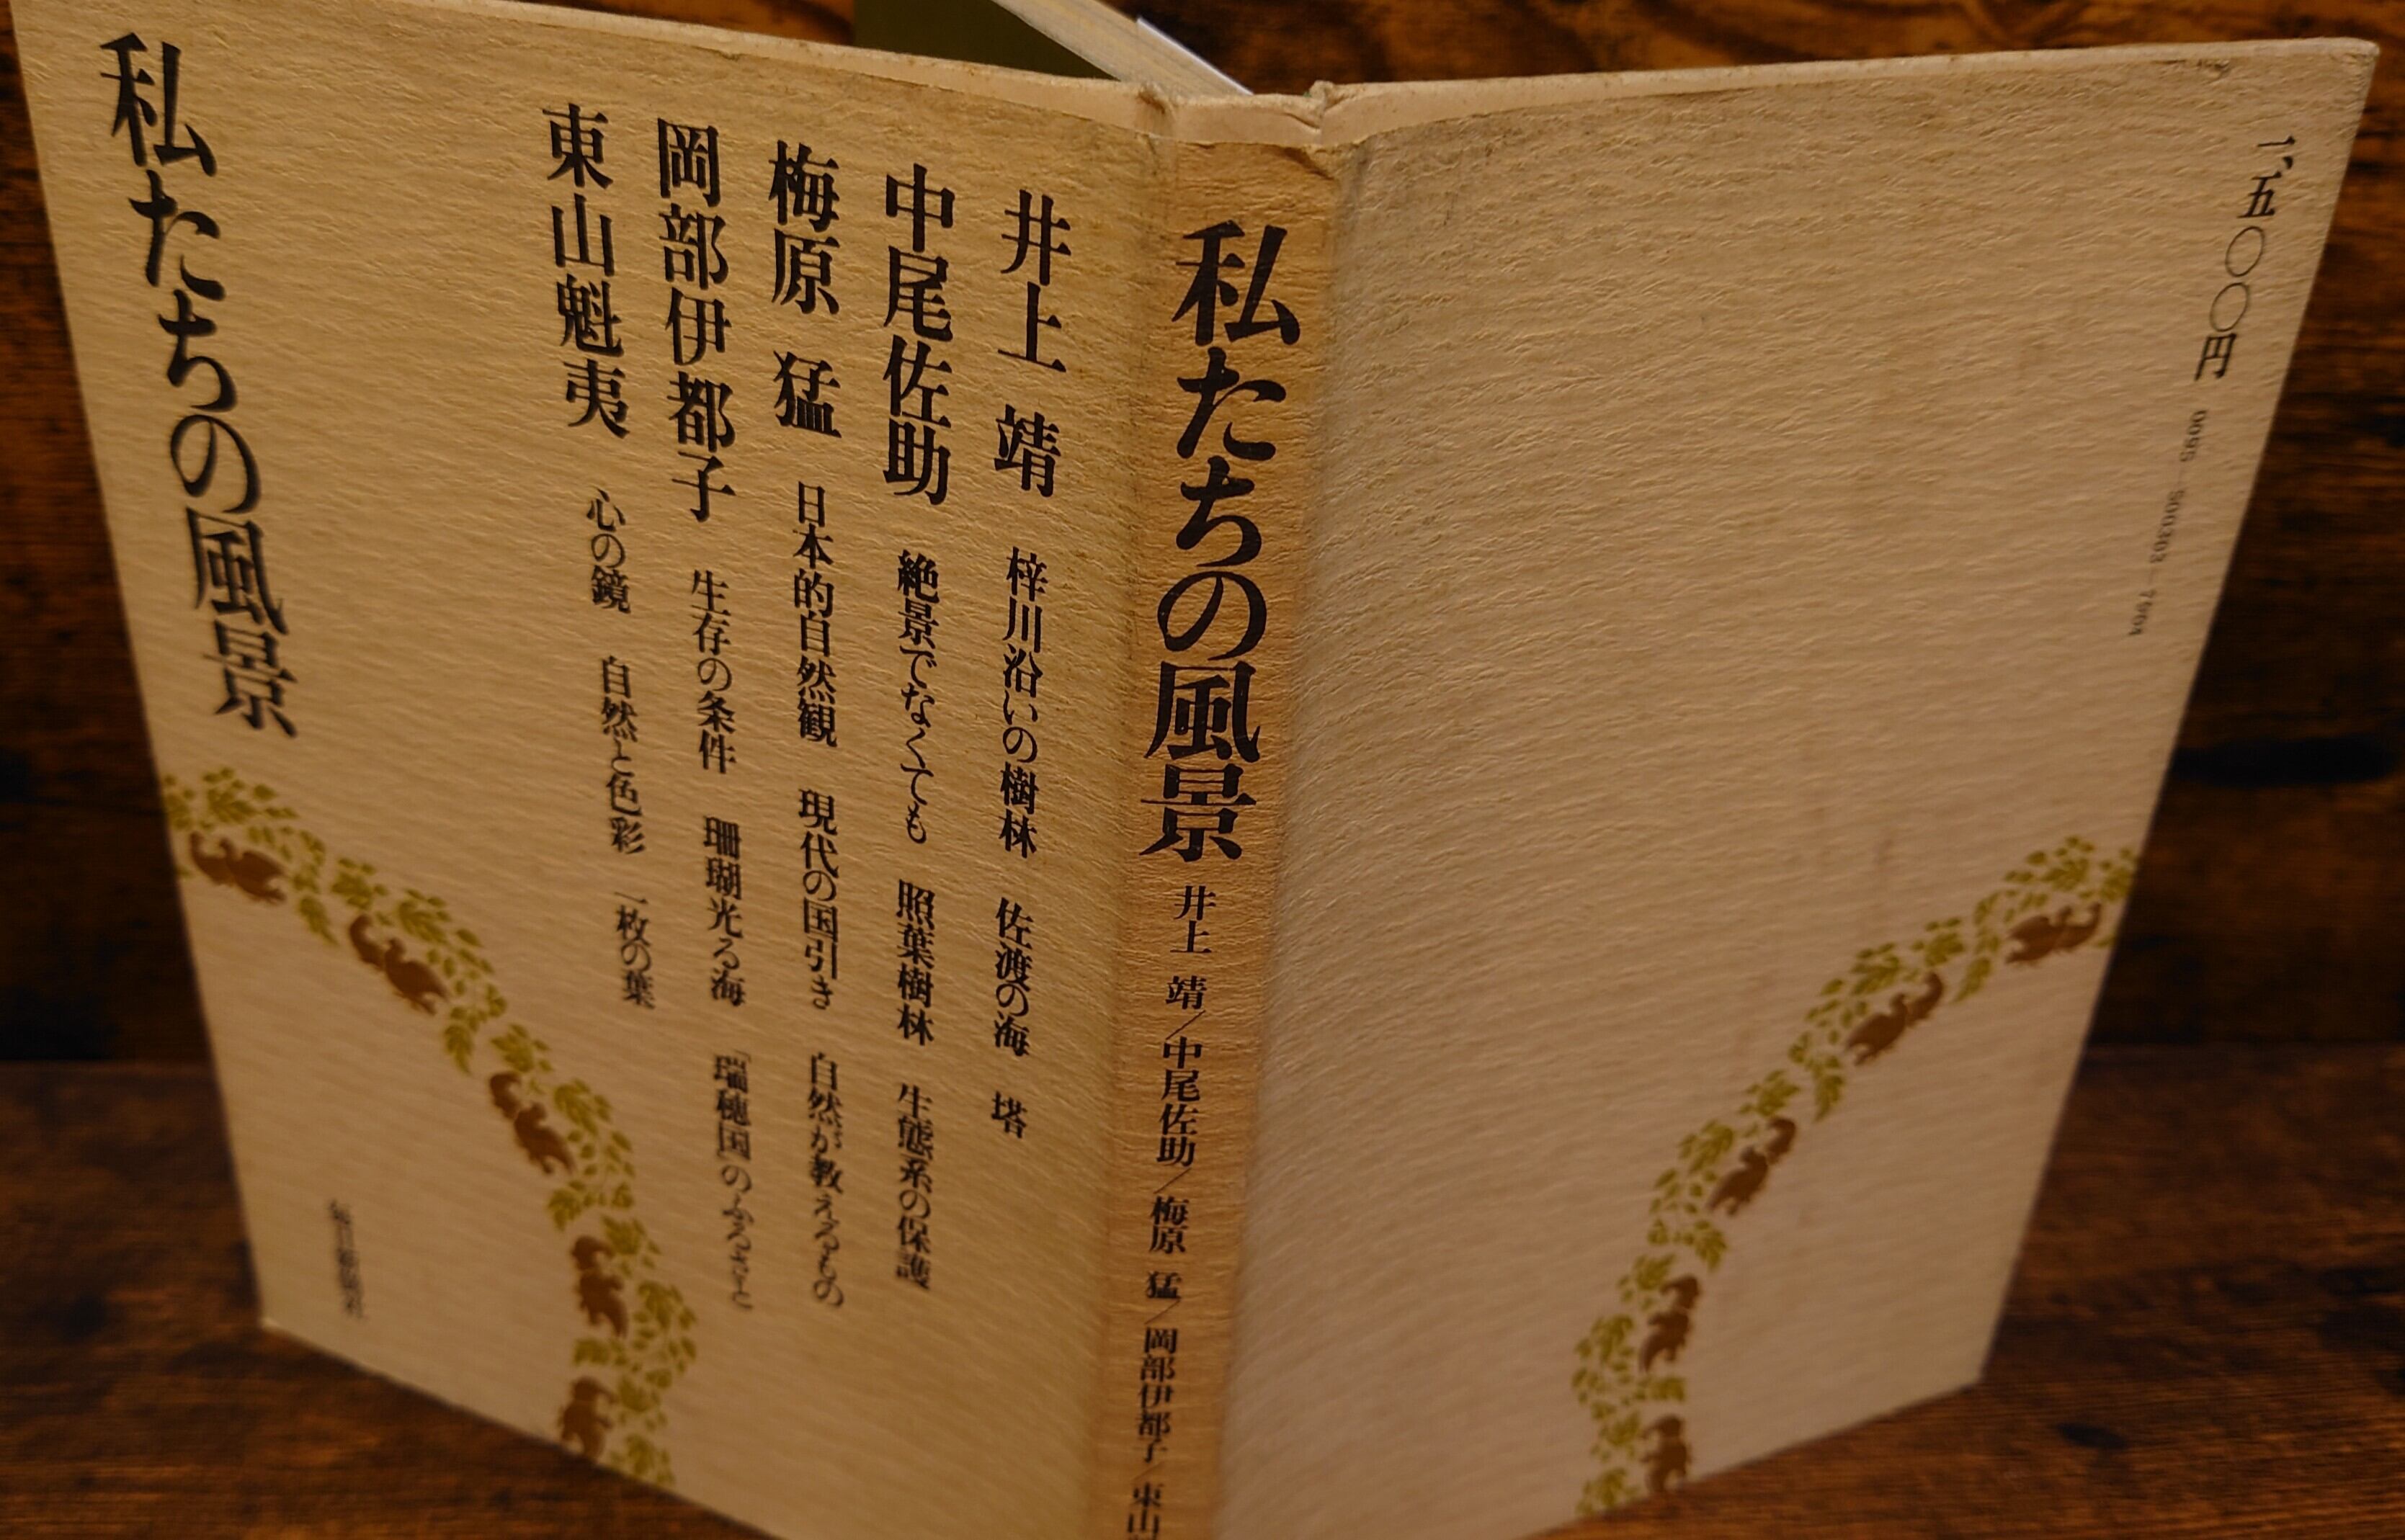 一、五〇〇円
0095-500303-7904
私たちの風景 井上 靖／中尾佐助／梅原 猛／岡部伊都子／東山
井上 靖 梓川沿いの樹林 佐渡の海 塔
中尾佐助 絶景でなくても 照葉樹林 生態系の保護
梅原 猛 日本的自然観 現代の国引き 自然が教えるもの
岡部伊都子 生存の条件 珊瑚光る海 「瑞穂国」のふるさと
東山魁夷 心の鏡 自然と色彩 一枚の葉
私たちの風景
毎日新聞社